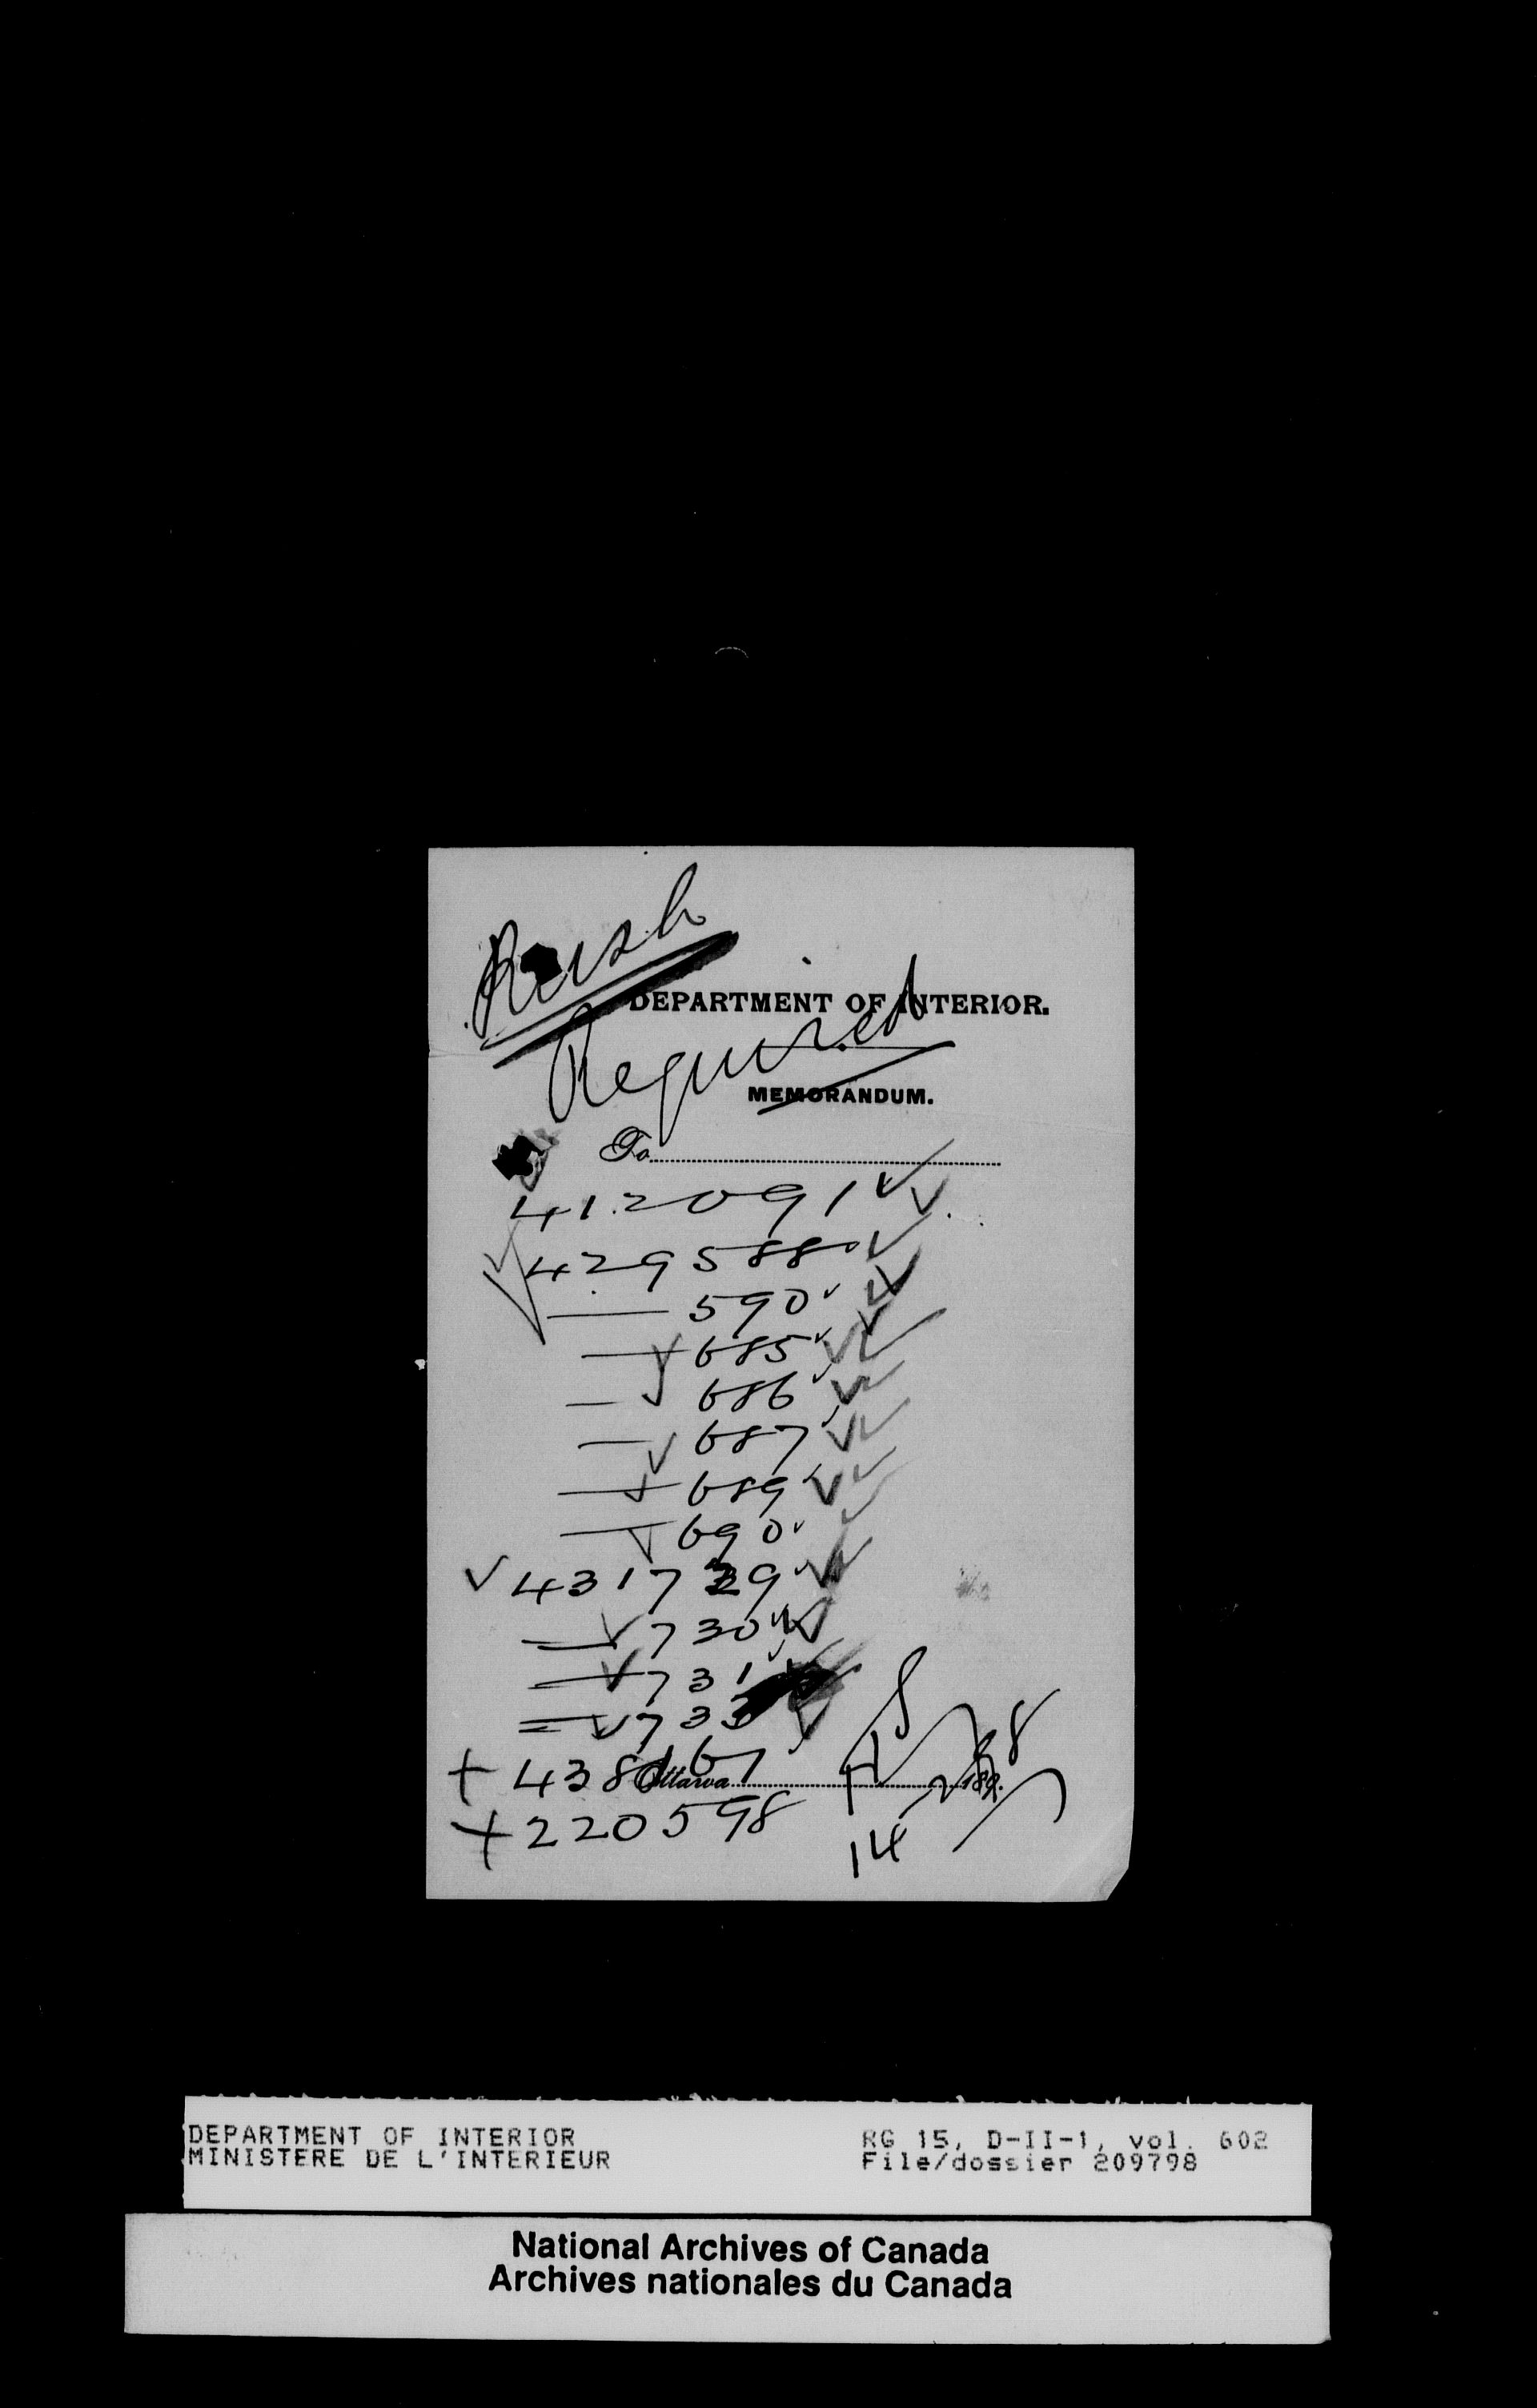 Rush
DEPARTMENT OF INTERIOR.
Required
MEMORANDUM.
To
412091 ✓✓
✓ 429588 ✓
— 590 ✓ ✓
— ✓ 685 ✓ ✓✓
— ✓ 686 ✓ ✓✓
— ✓ 687 ✓ ✓✓
— ✓ 689 ✓ ✓✓
— ✓ 690 ✓ ✓
✓ 431729 ✓ ✓
— ✓ 730 ✓ ✓
— ✓ 731 ✓
= ✓ 733 ✓
+ 438167
Ottawa 189
+ 220598
14
DEPARTMENT OF INTERIOR
MINISTERE DE L'INTERIEUR
RG 15, D-II-1, vol. 602
File/dossier 209798
National Archives of Canada
Archives nationales du Canada